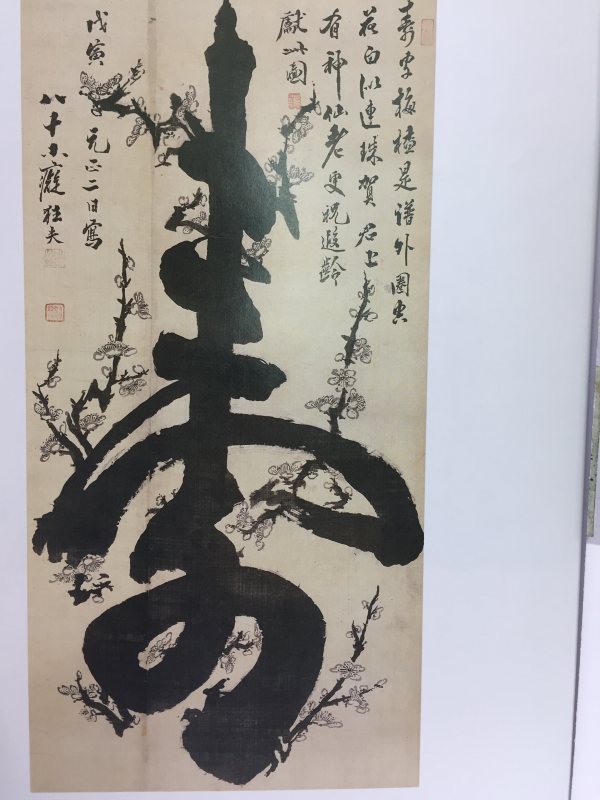 壽
壽字梅是譜外圈空
花白似連珠賀君上
有神仙老更祝遐齡
獻此圖
戊寅元正二日寫
八十小癡狂夫